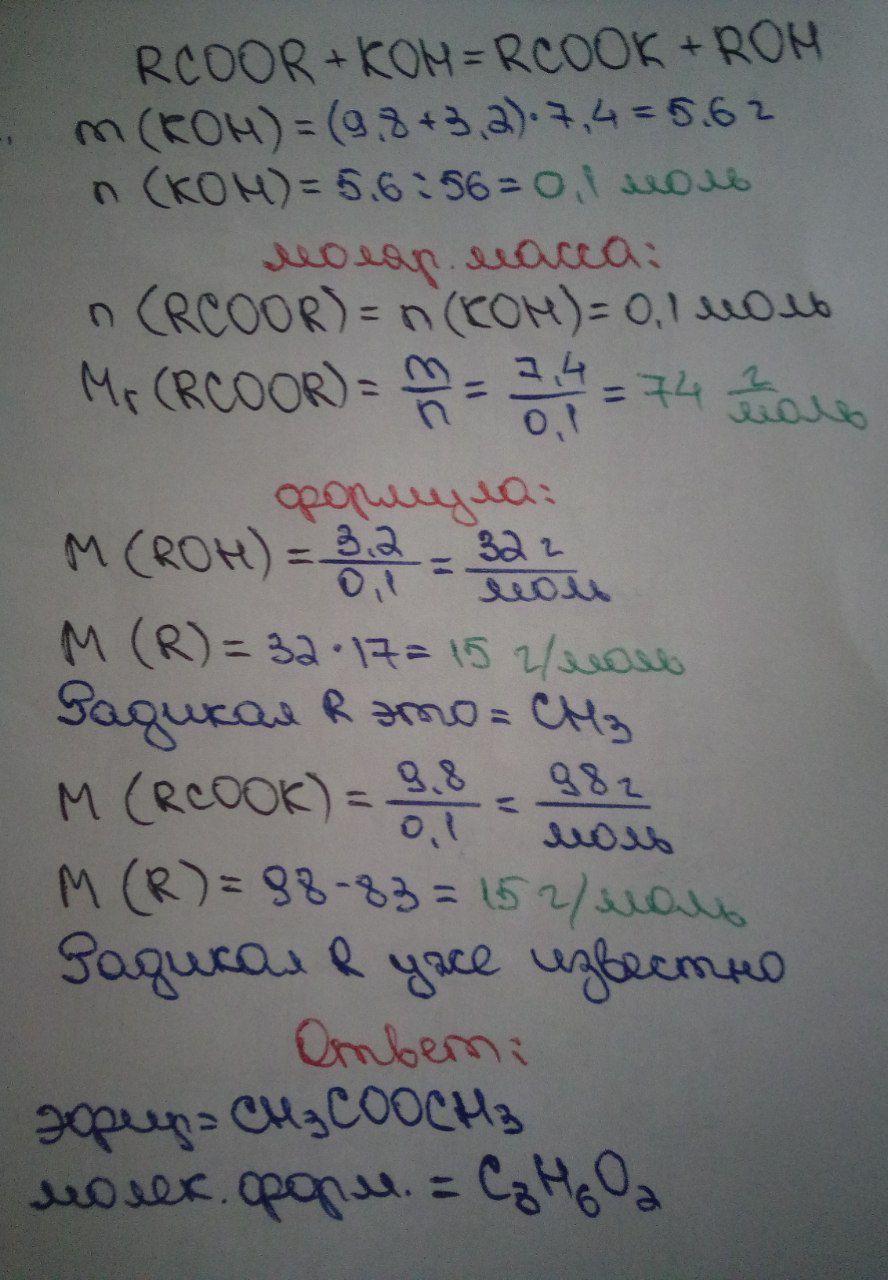 RCOOR + KOH = RCOOK + ROH
m (KOH) = (9,8 + 3,2) · 7,4 = 5,6 г
n (KOH) = 5,6 : 56 = 0,1 моль
моляр. масса:
n (RCOOR) = n (KOH) = 0,1 моль
Mr (RCOOR) = m/n = 7,4/0,1 = 74 г/моль
формула:
M (ROH) = 3,2/0,1 = 32 г/моль
M (R) = 32 · 17 = 15 г/моль
Радикал R это = CH3
M (RCOOK) = 9,8/0,1 = 98 г/моль
M (R) = 98 - 83 = 15 г/моль
Радикал R уже известно
Ответ:
эфир = CH3COOCH3
молек. форм. = C3H6O2